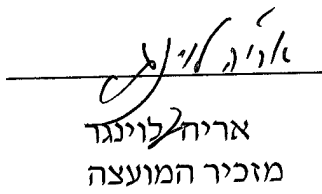 אריה לוינגר
אריה לוינגר
מזכיר המועצה